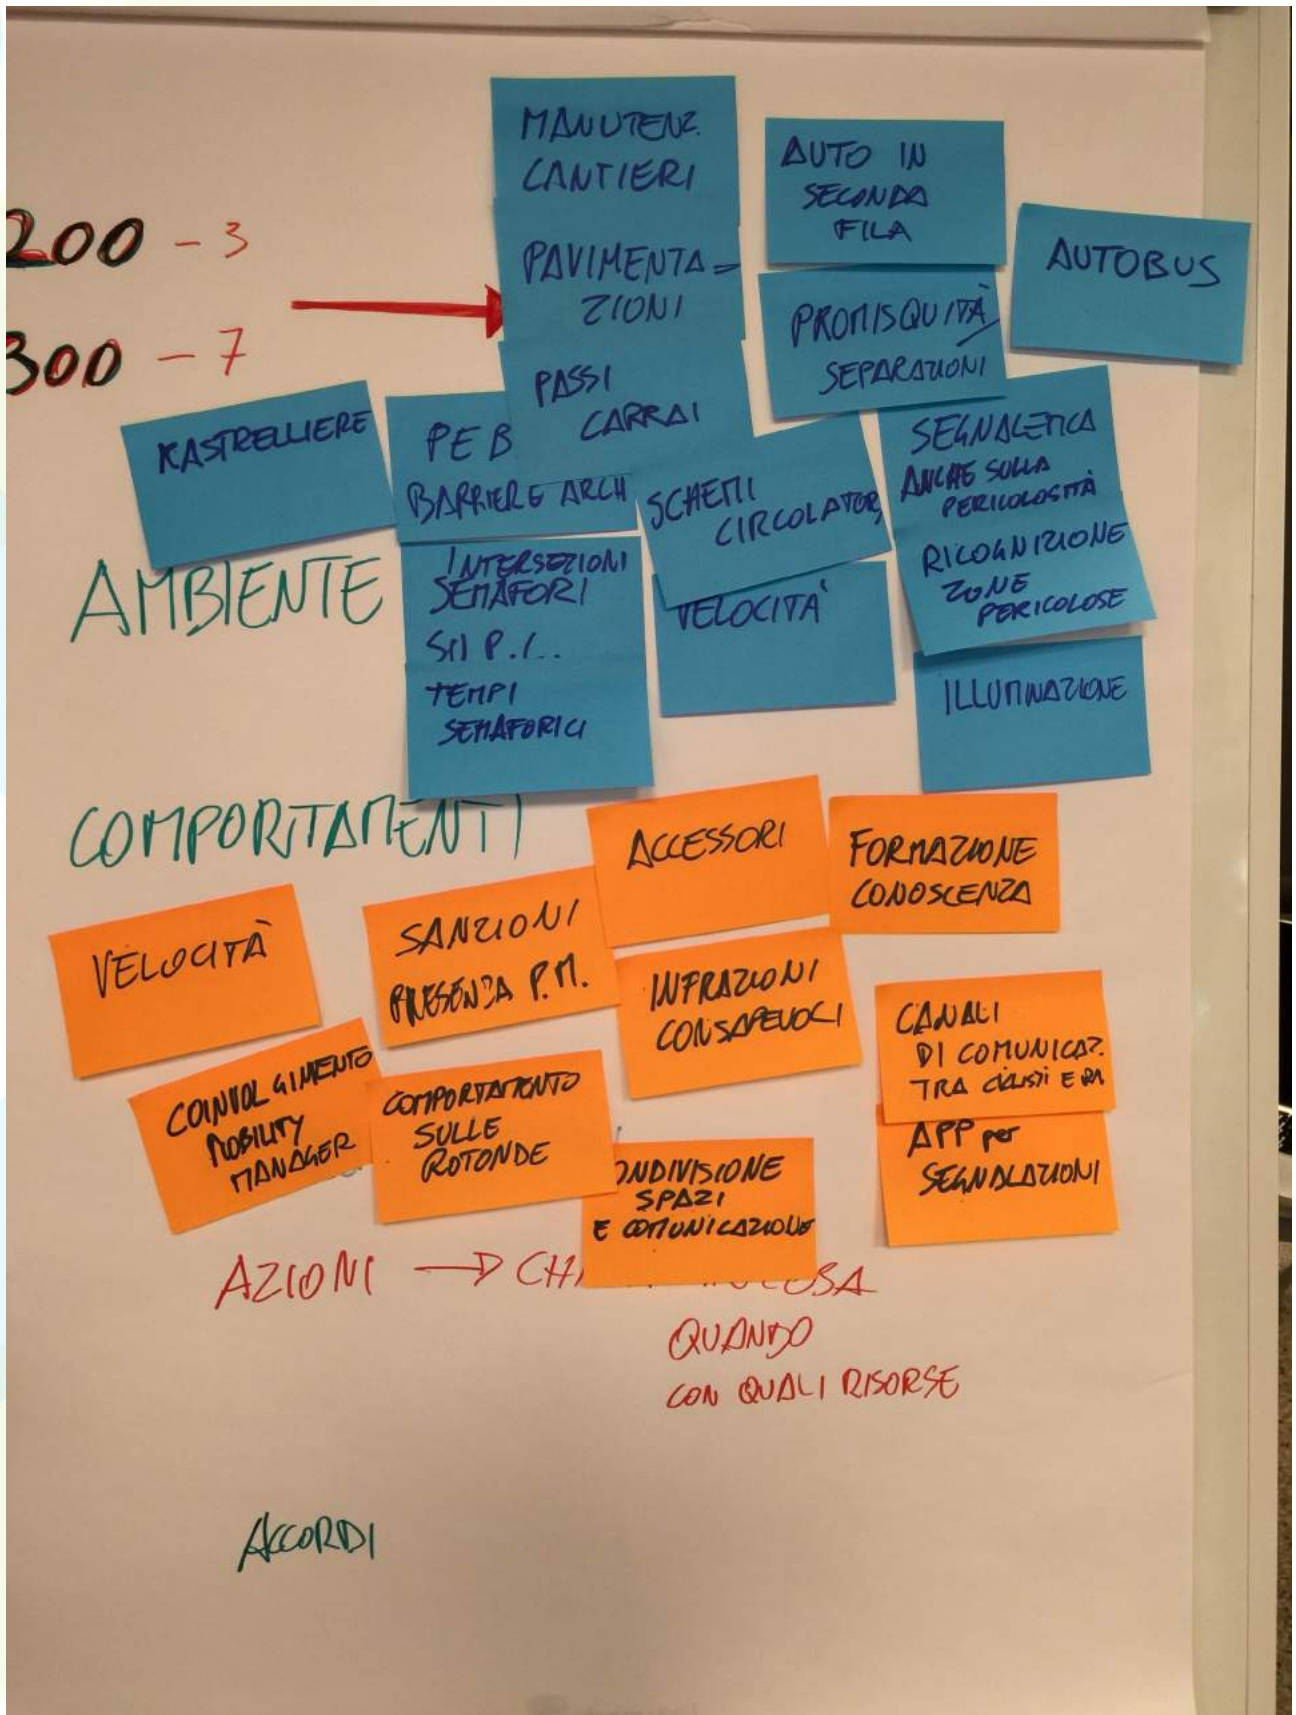 200 - 3
300 - 7
MANUTENZ.
CANTIERI
PAVIMENTA=
ZIONI
PASSI
CARRAI
AUTO IN
SECONDA
FILA
PROMISQUITÀ
SEPARAZIONI
AUTOBUS
RASTRELLIERE
PEB
BARRIERE ARCH
SCHEMI
CIRCOLATORI
SEGNALETICA
ANCHE SULLA
PERICOLOSITÀ
RICOGNIZIONE
ZONE
PERICOLOSE
AMBIENTE
INTERSEZIONI
SEMAFORI
TEMPI
SEMAFORICI
VELOCITÀ
ILLUMINAZIONE
COMPORTAMENTI
ACCESSORI
FORMAZIONE
CONOSCENZA
VELOCITÀ
SANZIONI
PRESENZA P.M.
INFRAZIONI
CONSAPEVOLI
CANALI
DI COMUNICAZ.
TRA CICLISTI E
COINVOLGIMENTO
MOBILITY
MANAGER
COMPORTAMENTO
SULLE
ROTONDE
ONDIVISIONE
SPAZI
E COMUNICAZIONE
APP per
SEGNALAZIONI
AZIONI → CHI
QUANDO
CON QUALI RISORSE
ACCORDI